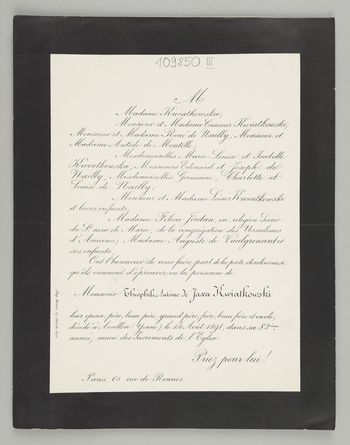 109850 III
M
Madame Kwiatkowska,
Monsieur et Madame Casimir Kwiatkowski,
Monsieur et Madame René de Nailly, Monsieur et
Madame Antide de Mentille
Mesdemoiselles Marie-Louise et Isabelle
Kwiatkowska, Messieurs Edouard et Joseph de
Nailly, Mesdemoiselles Germaine, Charlotte et
Louise de Nailly,
Monsieur et Madame Léon Kwiatkowski
et leurs enfants,
Madame Félicie Jordan, en religion
de de Marie, de la congrégation des Ursulines
d'Amiens, Madame Auguste de et
ses enfants
Ont l'honneur de vous faire part de la perte douloureuse
qu'ils viennent d'éprouver en la personne de
Monsieur Théophile Antoine de Jaxa Kwiatkowski
leur époux, père, beau-père, grand-père, frère, beau-frère et oncle,
décédé à Avallon (Yonne) le 14 Août 1891, dans sa 82ème
année, muni des Sacrements de l'Eglise.
Priez pour lui!
Paris, 65 rue de Rennes.